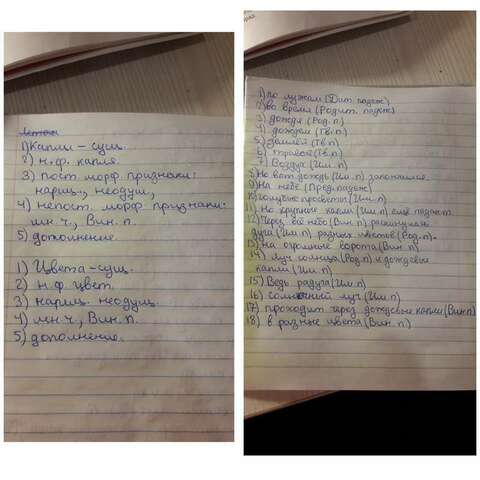 1) Капли – сущ.
2) н.ф. капля.
3) пост. морф. признаки:
нариц., неодуш,
4) непост. морф признаки:
мн ч., Вин. п.
5) дополнение.
1) Цвета – сущ.
2) н.ф цвет.
3) нариц. неодуш.
4) мн ч., Вин. п.
5) дополнение.
1) по лужам (Дат. падеж)
2) во время (Родит. падеж)
3) дождя (Род. п)
4) дождём (Тв. п)
5) землёй (Тв. п)
6) травой (Тв. п)
7) Воздух (Им. п)
8) Но вот дождь (Им. п) закончился.
9) На небе (Пред. падеж)
10) голубые просветы (Им. п)
11) Но крупные капли (Им. п) ещё падают.
12) Через всё небо (Вин. п) раскинулась
дуга (Им. п) разных цветов (Род. п).
13) на огромные ворота (Вин. п)
14) луч солнца (Род. п) и дождевые
капли (Им. п)
15) Ведь радуга (Им. п)
16) солнечный луч (Им. п)
17) проходит через дождевые капли (Вин п)
18) в разные цвета (Вин. п)